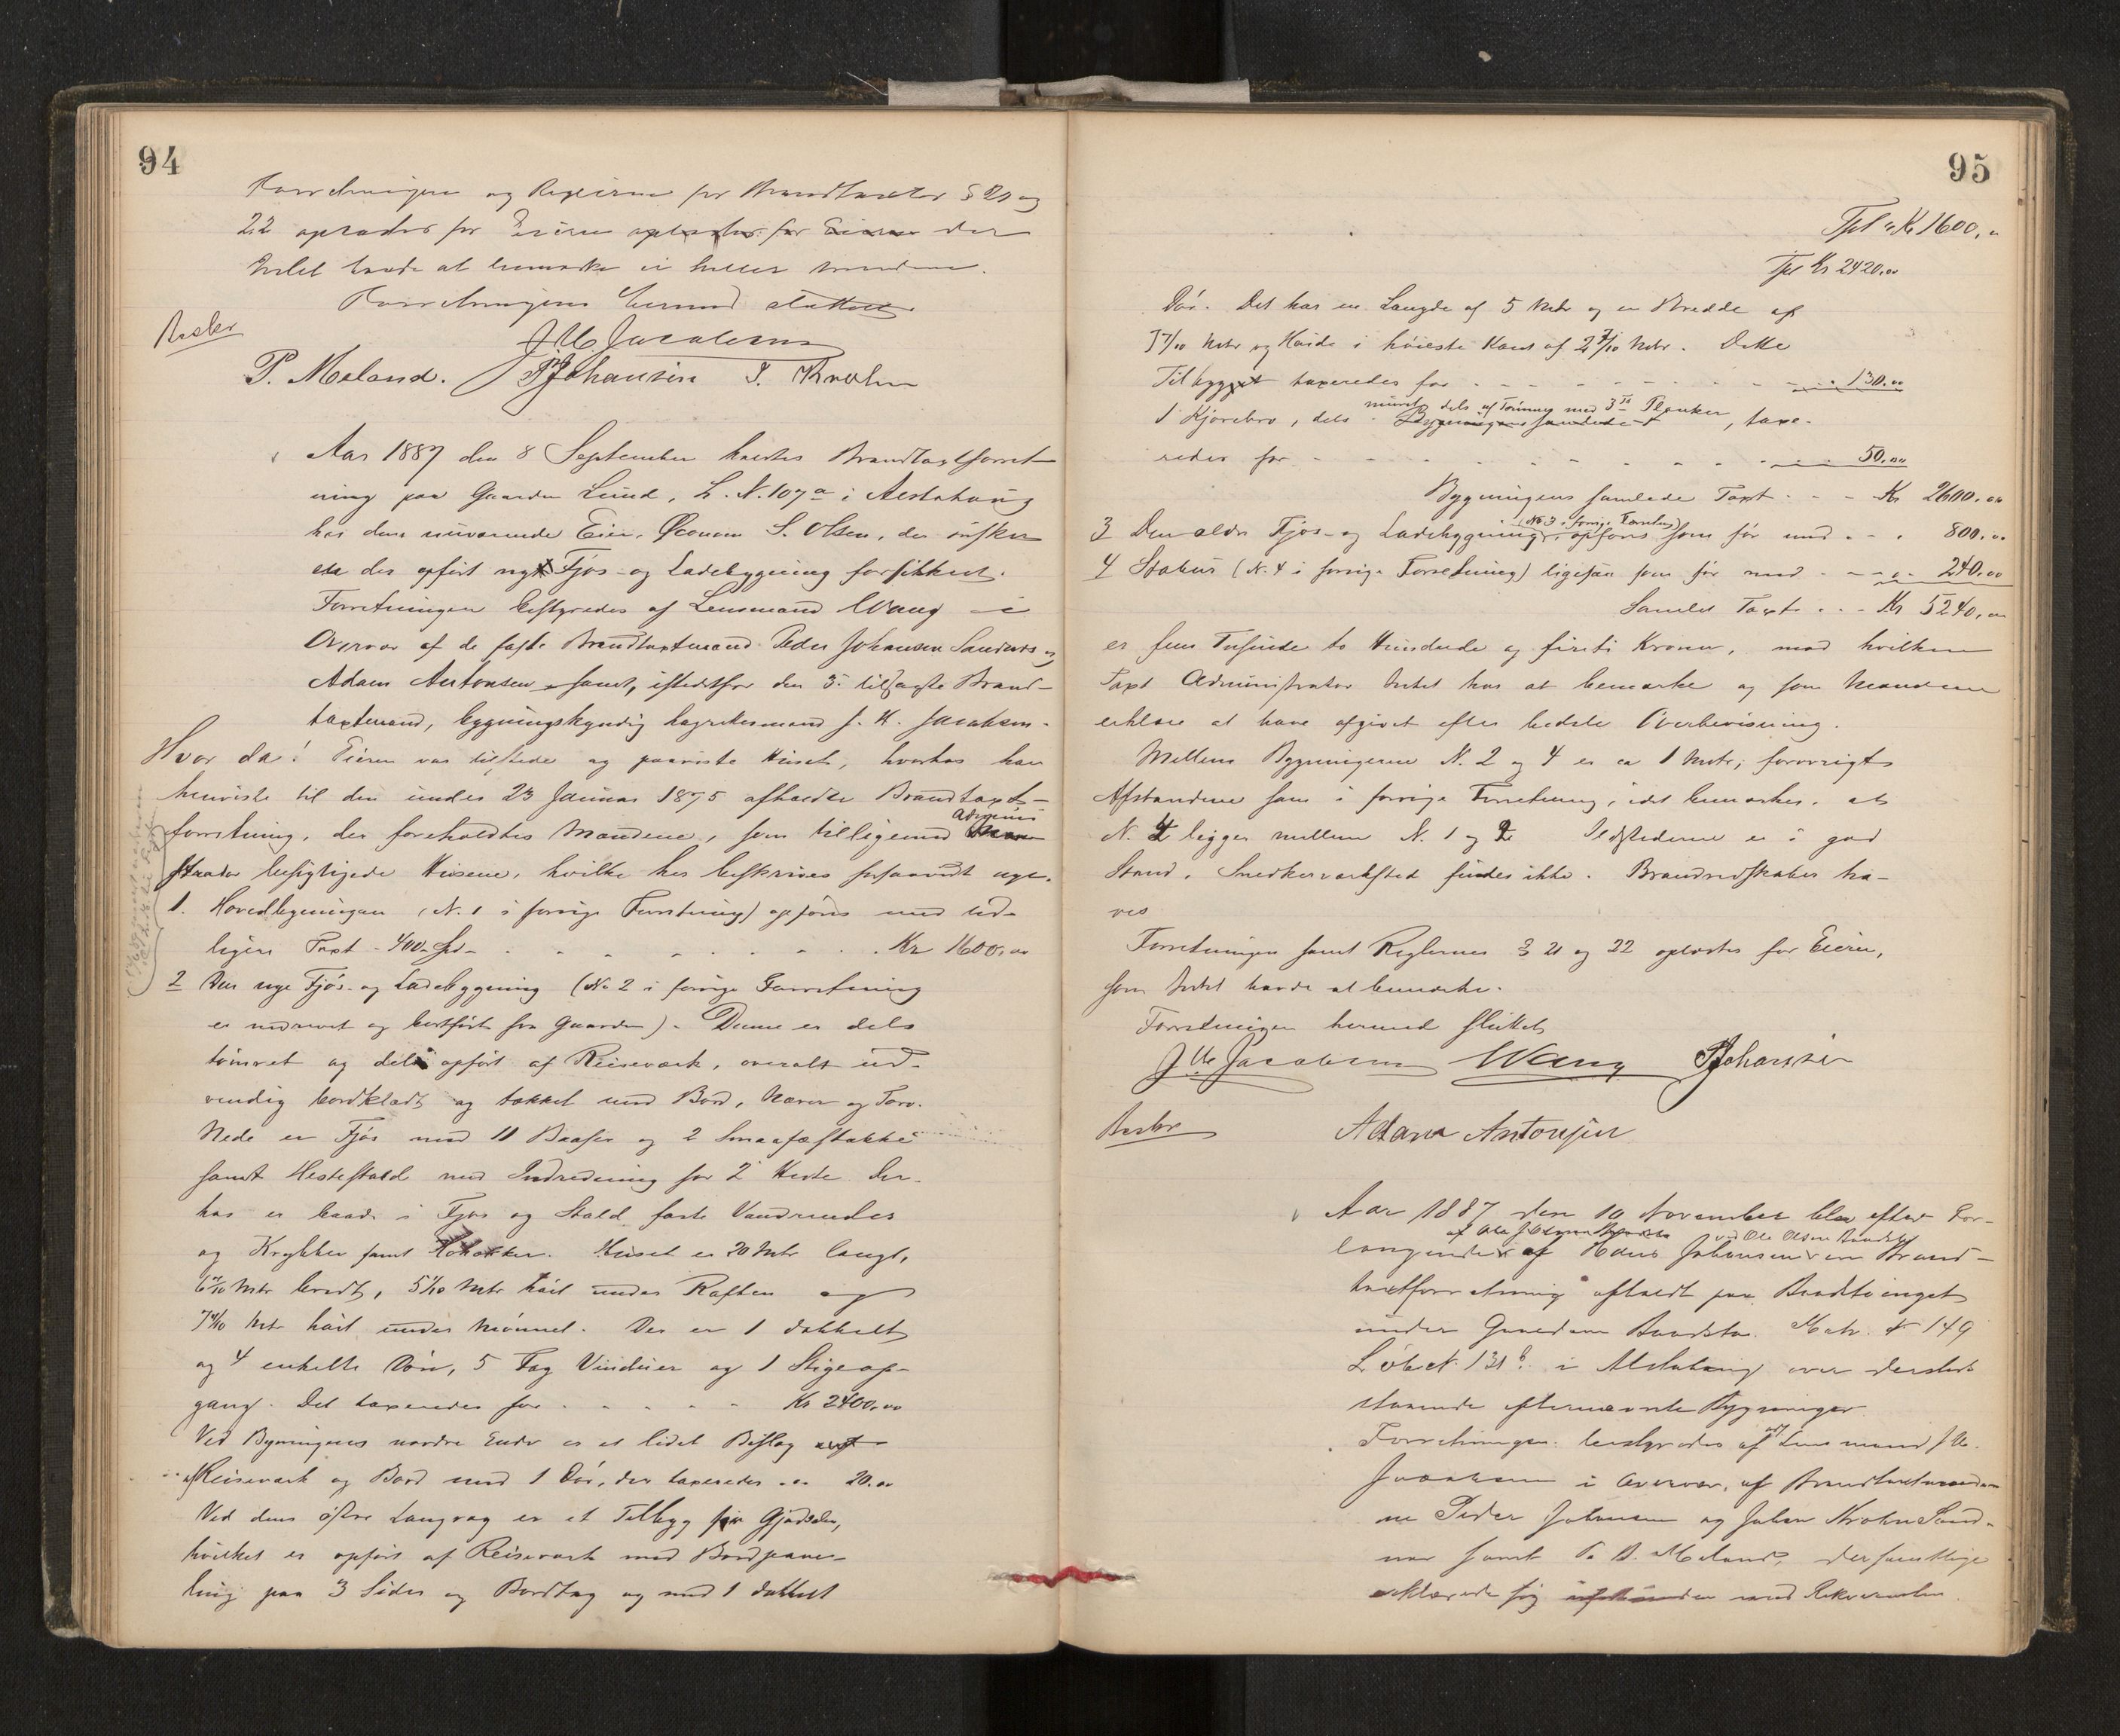 94
Forretningen og Reglerne for Brandtaxter § 21 og
22 oplæstes for Eieren oplæstes for Eieren der
Intet havde at bemærke ei heller Mændene.
Forretningen hermed sluttet.
Beskr
J M Jacobsen
P. Meland. PJohansen J. Krohn
Aar 1887 den 8 September holdtes Brandtaxtforret-
ning paa Gaarden Lund, L. N. 107 a i Alstahaug
hos dens nuværende Eier, Øconom S. Olsen, der ønsker
en der opført nyt Fjøs- og Ladebygning forsikket.
Forretningen bestyredes af Lensmand Wang i
Overvær af de faste Brandtaxtmænd Peder Johansen Sandnes og
Adam Antonsen samt, istedetfor den 3. tilsagte Brand-
taxtmand, bygningskyndig lagrettesmand J. M. Jacobsen.
Hvor da! Eieren var tilstede og paaviste Huset, hvorhos han
henviste til den under 23 Januar 1875 afholdte Brandtaxt-
forretning, der foreholdtes Mændene, som tilligemed Adminis
strator besigtigede Husene, hvilke her beskrives forsaavidt nye.
1. Hovedbygningen (N. 1 i forrige Forretning) opføres med tid-
ligere Taxt - 400 Spd - . . . . . . Kr 1600,00
2 Den nye Fjøs- og Ladebygning (No 2 i forrige Forretning
er nedrevet og bortført fra Gaarden). Denne er dels
tømret og dels opført af Reisverk, overalt ud-
vendig bordklædt og tækket med Bord, Næver og Torv.
Nede er Fjøs med 11 Baaser og 2 Smaafæstakke
samt Hestestald med Indredning for 2 Heste der-
hos er baade i Fjøs og Stald faste Vandrender
og Krybber samt Huset er 20 Mtr langt,
Mtr bredt, 5 1/10 Mtr høit under Raften og
Mtr høit under Mønnet. Der er 1 dobbelt
og 4 enkelte Døre, 5 Fag Vinduer og 1 Stigeop-
gang. Det taxeredes for . . . . . Kr 2400,00
Ved Bygningens nordre Ende er et lidet Bislag
af Reisverk og Bord med 1 Dør, der taxeredes . . 20.00
Ved dens østre Langvæg er et Tilbyg for Gjødselen,
hvilket er opført af Reisverk med Bordpane-
ling paa 3 Sider og Bordtag og med 1 dobbelt
95
Tspt Kr 1600,"
Tpt Kr 2420,00
Dør. Det har en Længde af 5 Mtr og en Bredde af
Mtr og Høide i høieste Kant af 2 4/10 Mtr. Dette
Tilbygget taxeredes for - - - - - - - 130.00
muret, dels af Tømmer med 3 Ts Planker
1 Kjørebro, dels Bygningens samlede T, taxe-
redes for - - - - - - - 50,00
Bygningens samlede Taxt - - - Kr 2600.00
(No 3 i forrige Forretning)
3 Den ældre Fjøs- og Ladebygning, opføres som før med - - . 800."
4 Stabur (N. 4 i forrige Forretning) ligesaa som før med - - - 240,00
Samlet Taxt . . - Kr 5240,00
er fem Tusinde to Hundrede og firti Kroner, mod hvilken
Taxt Administrator Intet har at bemærke og som Mændene
erklære at have afgivet efter bedste Overbevisning.
Mellem Bygningerne N. 2 og 4 er ca 1 Mtr; forøvrigt
Afstandene som i forrige Forretning, idet bemærkes, at
N. 4 ligger mellem N. 1 og 2 Ildstederne er i god
Stand. Snedkerværksted findes ikke. Brandredskaber ha-
ves
Forretningen samt Reglernes § 21 og 22 oplæstes for Eieren,
som Intet havde at bemærke.
Forretningen hermed sluttet
J M Jacobsen Wang PJohansen
Beskr
Adam Antonsen
Aar 1887 den 10 November blev efter For-
ved Ole Olsen
langende af Hans Johansen en Brand-
taxtforretning afholdt paa
under Gaarden Matr. No 149
LøbeN. 131 b. i Alstahaug over dersteds
staaende efternævnte Bygninger
Forretningen bestyredes af Lensmand J M.
Jacobsen i Overvær af Brandtaxtmænde-
ne Peder Johansen og Johan Krohn Sand-
nes samt P. B. Meland, der samtlige
erklærede sig med Rekvirenten